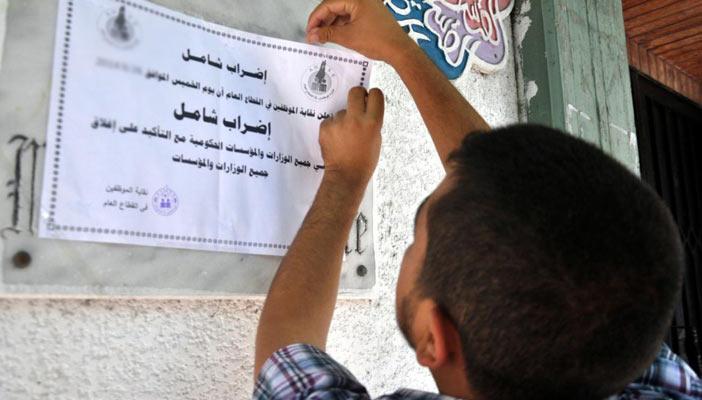 إضراب شامل
تعلن نقابة الموظفين في القطاع العام أن يوم الخميس الموافق
إضراب شامل
في جميع الوزارات والمؤسسات الحكومية مع التأكيد على إغلاق
جميع الوزارات والمؤسسات
نقابة الموظفين
في القطاع العام